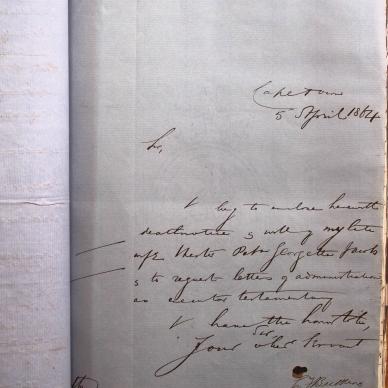 Cape Town
5 April 1864
Sir,
I beg to enclose herewith
deathnotice & will of my late
wife Hester Petr Georgetta Jacobs
& to request letters of administration
as executor testamentary
I have the honor to be,
Sir
Your obdt Servant